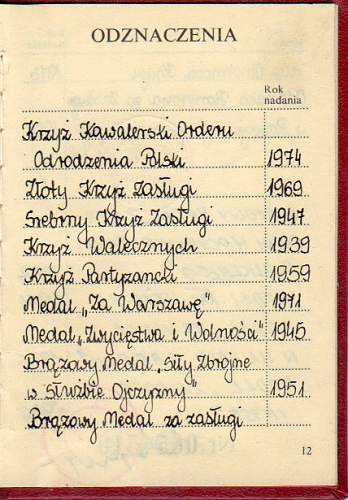 ODZNACZENIA
Rok
nadania
Krzyż Kawalerski Orderu
Odrodzenia Polski 1974
Złoty Krzyż Zasługi 1969
Srebrny Krzyż Zasługi 1947
Krzyż Walecznych 1939
Krzyż Partyzancki 1959
Medal „Za Warszawę" 1971
Medal „Zwycięstwa i Wolności" 1945
Brązowy Medal „Siły Zbrojne
w Służbie Ojczyzny" 1951
Brązowy Medal za zasługi
12